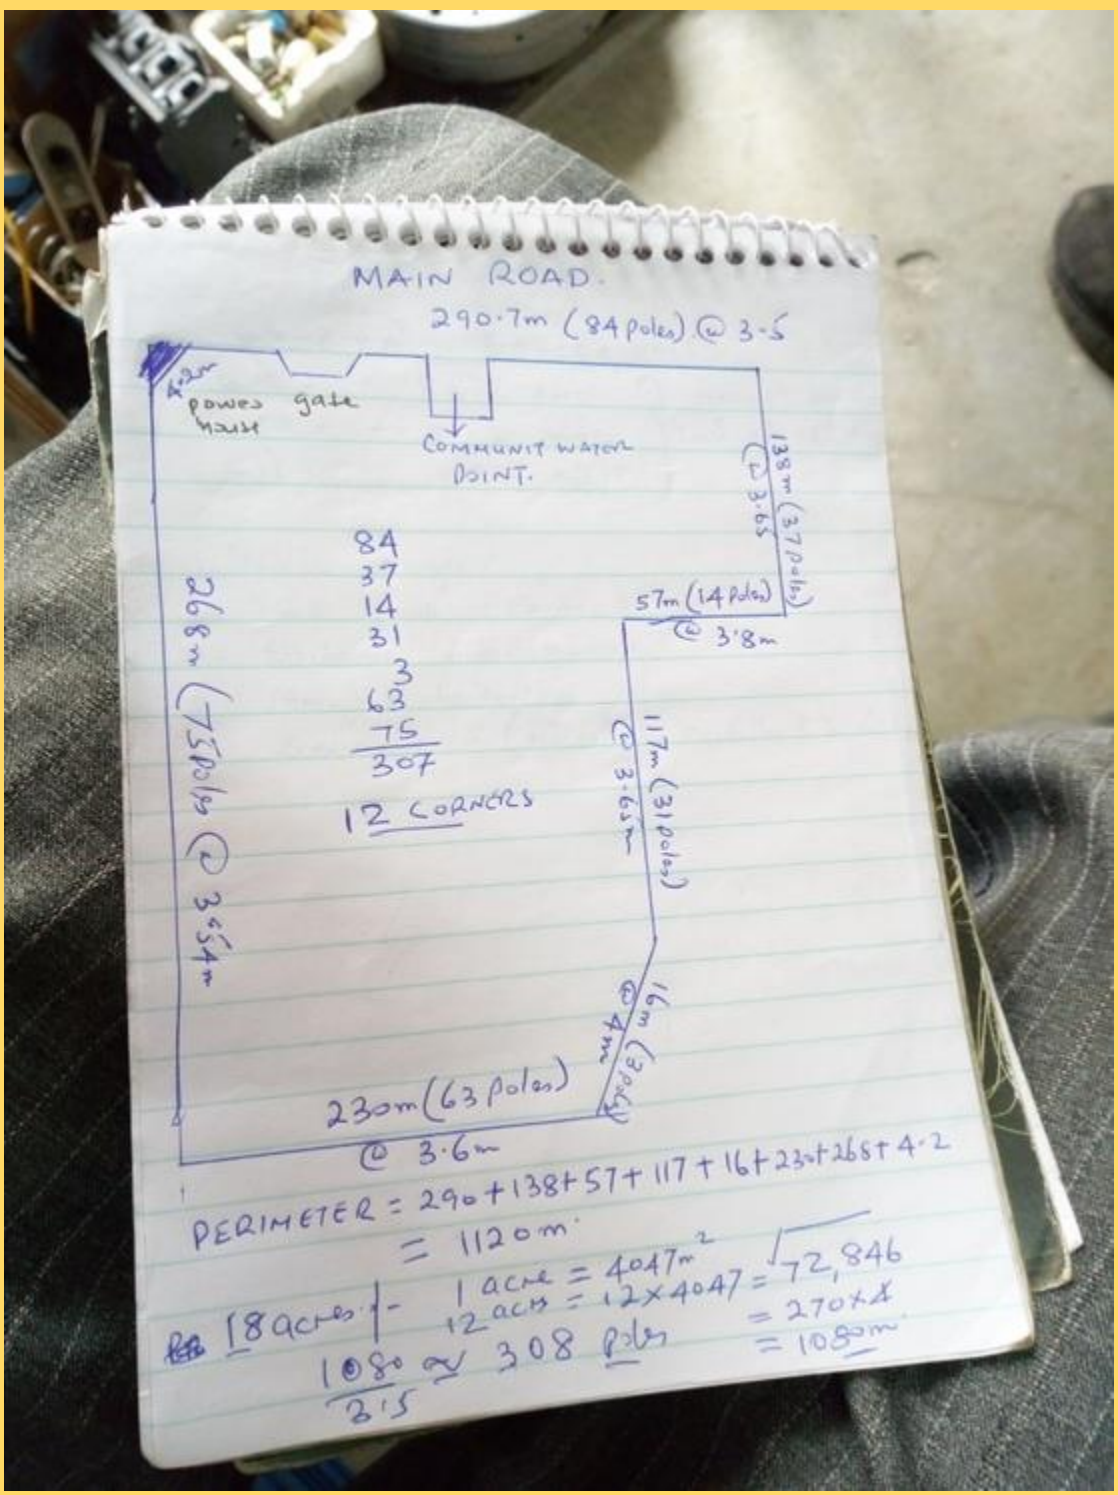 MAIN ROAD.
290.7m (84 poles) @ 3.5
4.2m
power gate
house
COMMUNIT WATER
POINT.
138m (37 poles)
@ 3.65
57m (14 poles)
@ 3.8m
84
37
14
31
3
63
75
307
12 CORNERS
268m (75 poles @ 3.54m
117m (31 poles)
@ 3.65m
16m (3 poles)
@ 4m
230m (63 poles)
@ 3.6m
PERIMETER = 290+138+57+117+16+230+268+4.2
= 1120m.
18 acres - 1 acre = 4047m²
12 acrs = 12×4047 = √72,846
= 270×4
1080 ≈ 308 poles = 1080m
3.5